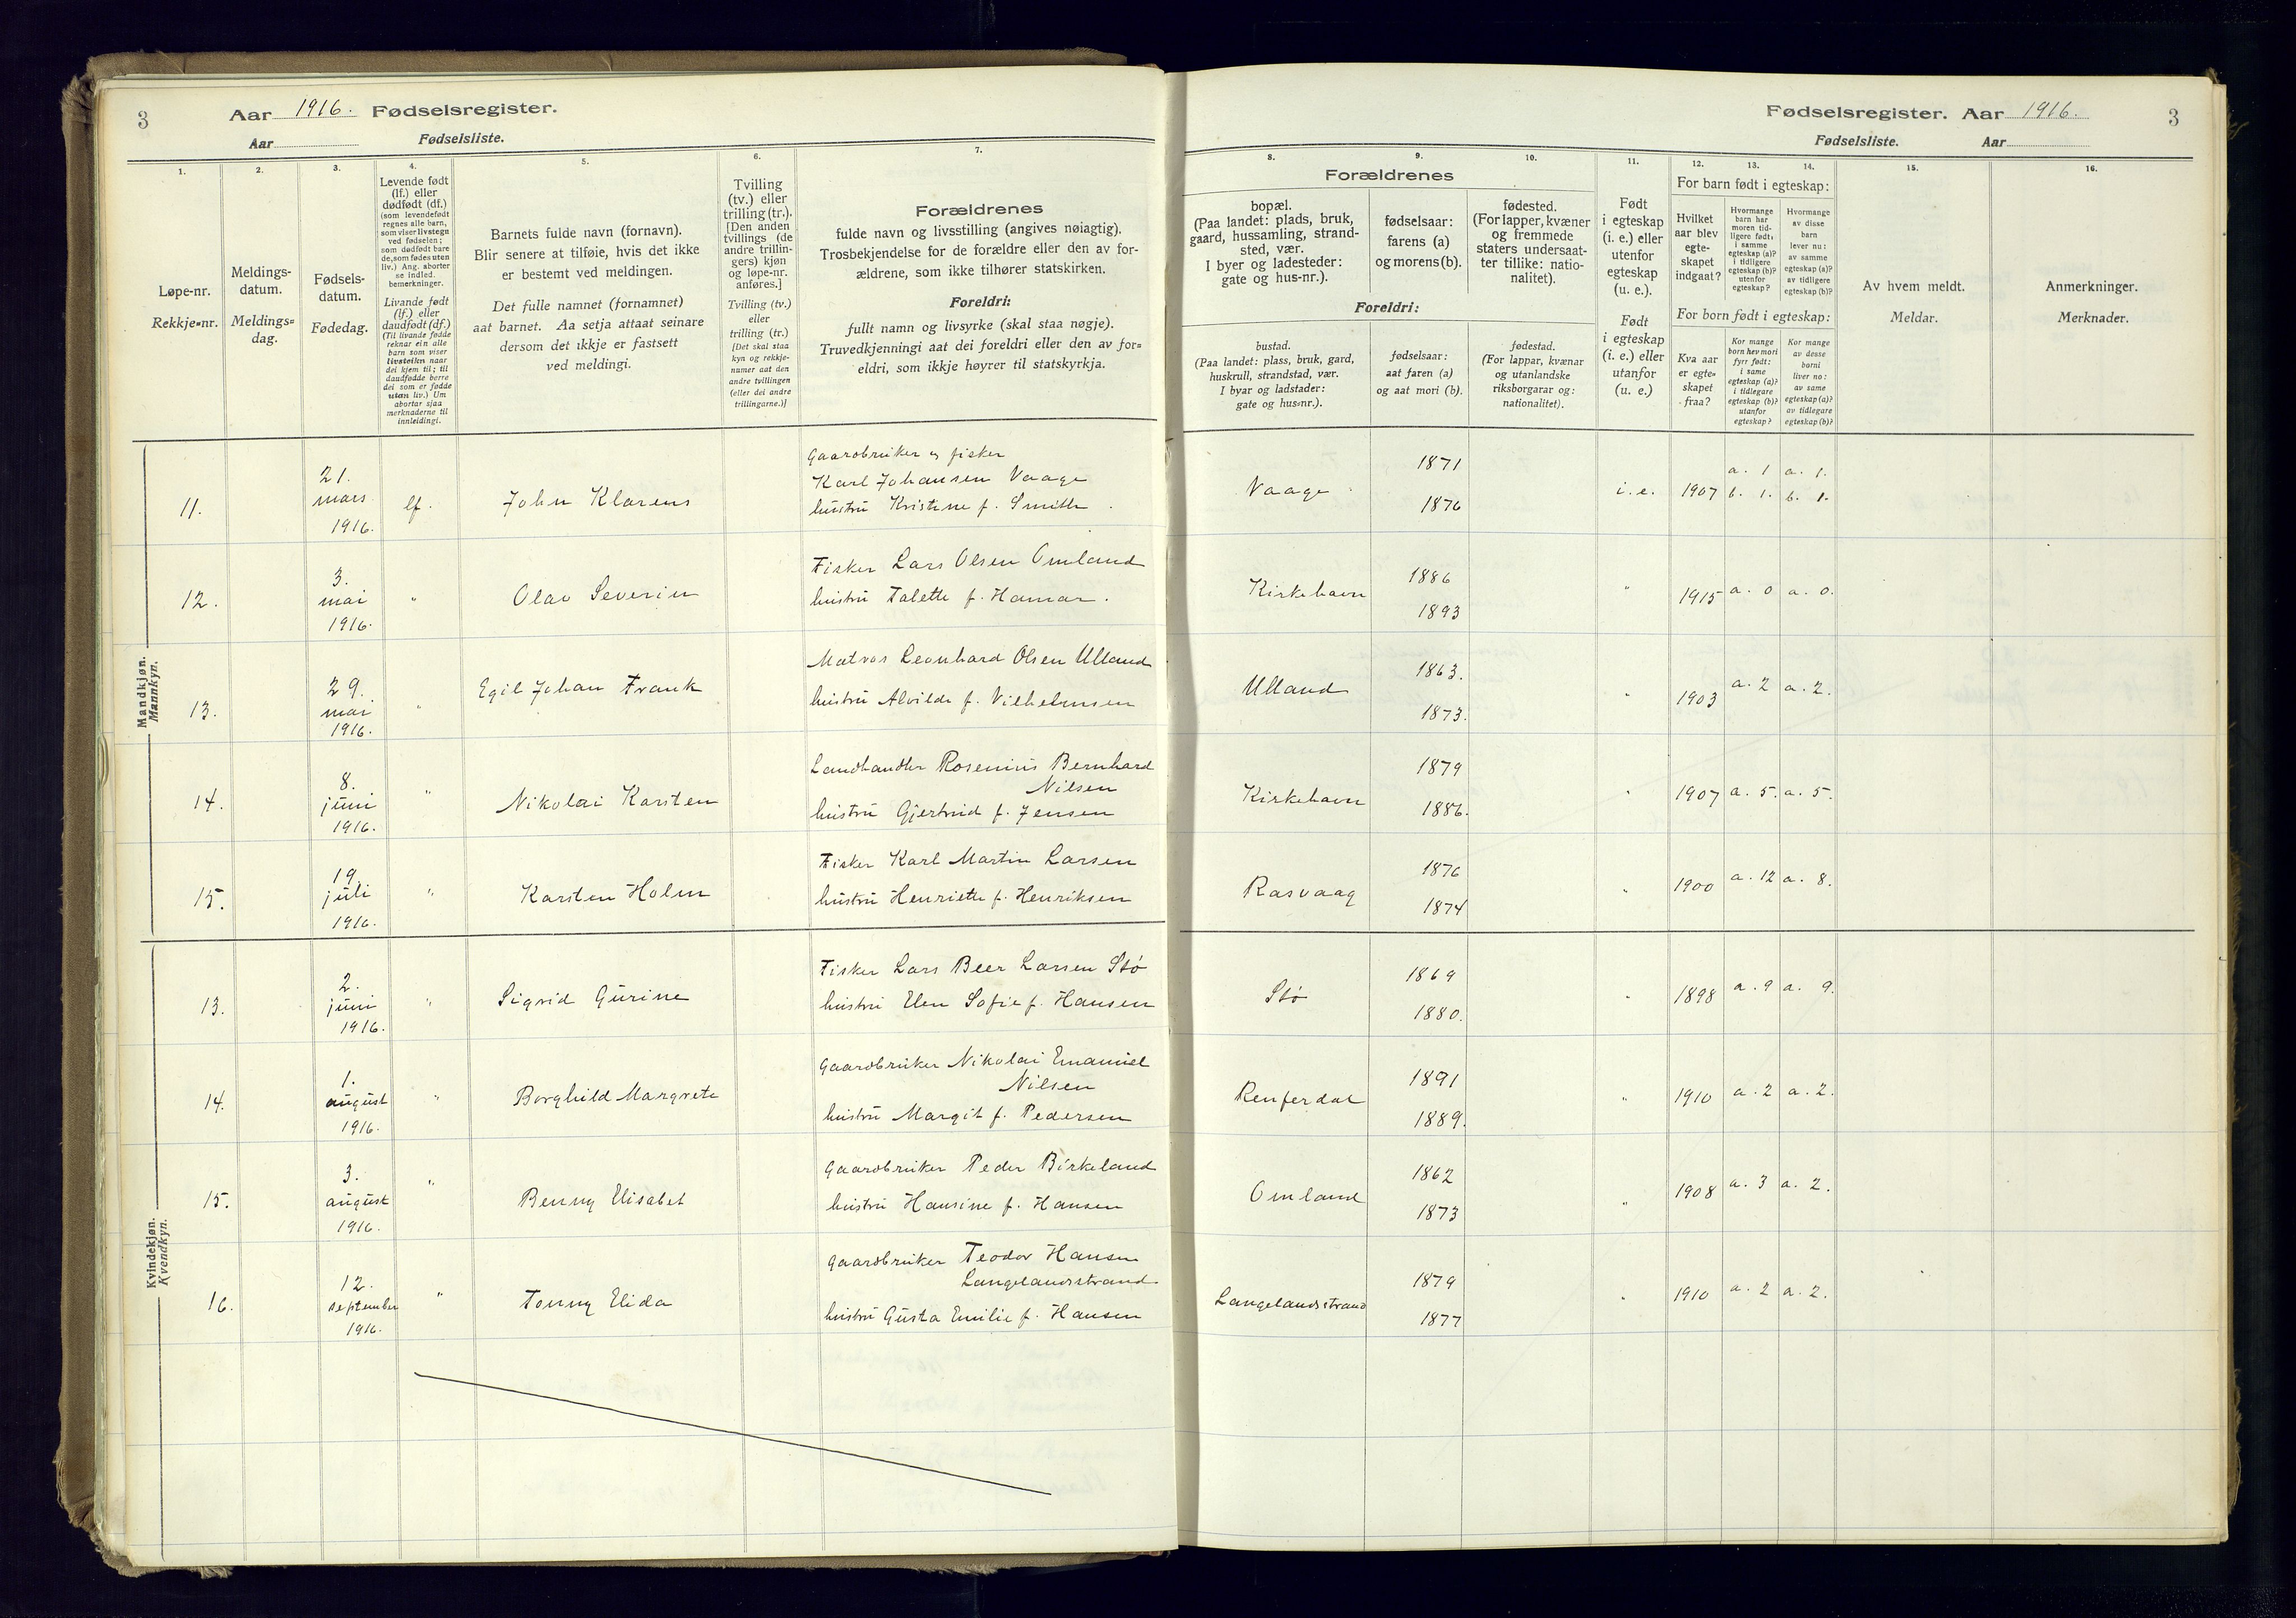 3
Aar 1916. Fødselsregister.
Aar Fødselsliste.
1.
2.
3.
4.
5.
6.
7.
Løpe-nr.
Rekkje-nr.
Meldings-
datum.
Meldings-
dag.
Fødsels-
datum.
Fødedag.
Levende født
(lf.) eller
dødfødt (df.)
(som levendefødt
regnes alle barn,
som viser livstegn
ved fødselen;
som dødfødt bare
de, som fødes uten
liv.) Ang. aborter
se indled.
bemerkninger.
Livande født
(lf.) eller
daudfødt (df.)
(Til livande fødde
reknar ein alle
barn som viser
livsteikn naar
dei kjem til; til
daudfødde berre
dei som er fødde
utan liv.) Um
abortar sjaa
merknaderne til
innleidingi.
Barnets fulde navn (fornavn).
Blir senere at tilføie, hvis det ikke
er bestemt ved meldingen.
Det fulle namnet (fornamnet)
aat barnet. Aa setja attaat seinare
dersom det ikkje er fastsett
ved meldingi.
Tvilling
(tv.) eller
trilling (tr.).
[Den anden
tvillings (de
andre trillin-
gers) kjøn
og løpe-nr.
anføres.]
Tvilling (tv.)
eller
trilling (tr.)
[Det skal staa
kyn og rekkje-
numer aat den
andre tvillingen
(eller dei andre
trillingarne.)]
Forældrenes
fulde navn og livsstilling (angives nøiagtig).
Trosbekjendelse for de forældre eller den av for-
ældrene, som ikke tilhører statskirken.
Foreldri:
fullt namn og livsyrke (skal staa nøgje).
Truvedkjenningi aat dei foreldri eller den av for-
eldri, som ikkje høyrer til statskyrkja.
Mandkjøn.
Mannkyn.
11.
21.
mars
1916.
lf.
John Klarens
Gaardbruker og fisker
Karl Johansen Vaage
hustru Kristine f. Smith
12.
3.
mai
1916.
"
Olav Severin
Fisker Lars Olsen Omland
hustru Talette f. Hamar.
13.
29.
mai
1916.
"
Egil Johan Frank
Matros Leonhard Olsen Ulland
hustru Alvilde f. Vilhelmsen
14.
8.
juni
1916.
"
Nikolai Karsten
Landhandler Rosenius Bernhard
Nilsen
hustru Gjertrud f. Jensen
15.
19.
juli
1916.
"
Karsten Holm
Fisker Karl Martin Larsen
hustru Henriette f. Henriksen
Kvindekjøn.
Kvendkyn.
13.
2.
juni
1916.
"
Sigrid Gurine
Fisker Lars Beer Larsen Stø
hustru Elen Sofie f. Hansen
14.
1.
august
1916.
"
Borghild Margrete
Gaardbruker Nikolai Emanuel
Nilsen
hustru Margit f. Pedersen
15.
3.
august
1916.
"
Benny Elisabet
Gaardbruker Peder Birkeland
hustru Hansine f. Hansen
16.
12.
september
1916.
"
Tonny Elida
Gaardbruker Teodor Hansen
Langelandsstrand
hustru Gusta Emilie f. Hansen
Fødselsregister. Aar 1916.
3
Fødselsliste. Aar
8.
9.
10.
11.
12.
13.
14.
15.
16.
Forældrenes
bopæl.
(Paa landet: plads, bruk,
gaard, hussamling, strand-
sted, vær.
I byer og ladesteder:
gate og hus-nr.).
fødselsaar:
farens (a)
og morens (b).
fødested.
(For lapper, kvæner
og fremmede
staters undersaat-
ter tillike: natio-
nalitet).
Foreldri:
bustad.
(Paa landet: plass, bruk, gard,
huskrull, strandstad, vær.
I byar og ladstader:
gate og hus-nr.).
fødselsaar:
aat faren (a)
og aat mori (b).
fødestad.
(For lappar, kvænar
og utanlandske
riksborgarar og:
nationalitet).
Født
i egteskap
(i. e.) eller
utenfor
egteskap
(u. e.).
Født
i egteskap
(i. e.) eller
utanfor
egteskap
(u. e.).
For barn født i egteskap:
Hvilket
aar blev
egte-
skapet
indgaat?
Hvormange
barn har
moren tid-
ligere født:
i samme
egteskap (a)?
i tidligere
egteskap (b)?
utenfor
egteskap?
Hvormange
av disse
barn
lever nu:
av samme
egteskap (a)?
av tidligere
egteskap (b)?
For born født i egteskap:
Kva aar
er egte-
skapet
fraa?
Kor mange
born hev mori
fyrr født:
i same
egteskap (a)?
i tidlegare
egteskap (b)?
utanfor
egteskap?
Kor mange
av desse
borni
liver no:
av same
egteskap (a)?
av tidlegare
egteskap (b)?
Av hvem meldt.
Meldar.
Anmerkninger.
Merknader.
Vaage
1871
1876
i. e.
1907
a. 1
b. 1.
a. 1.
b. 1.
Kirkehavn
1886
1893
"
1915
a. 0
a. 0.
Ulland
1863.
1873.
"
1903
a. 2
a. 2.
Kirkehavn
1879
1886.
"
1907
a. 5.
a. 5.
Rasvaag
1876
1874
"
1900
a. 12
a. 8.
Stø
1869
1880.
"
1898
a. 9
a. 9.
Renferdal
1891
1889.
"
1910
a. 2
a. 2.
Omland
1862
1873
"
1908
a. 3
a. 2.
Langelandsstrand
1879
1877
"
1910
a. 2
a. 2.